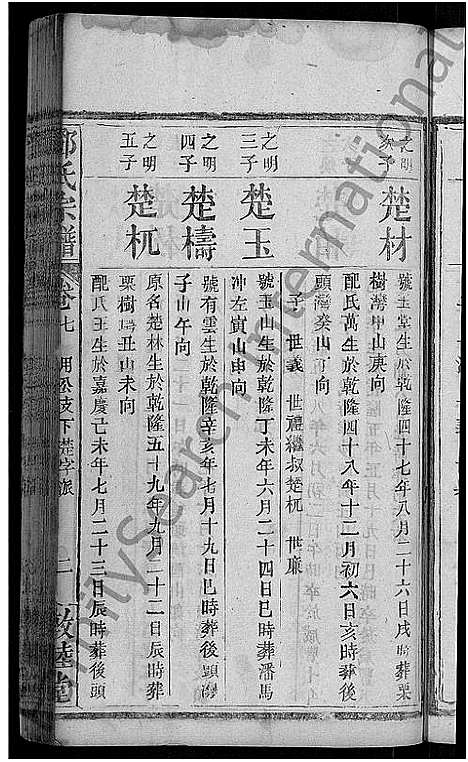 之明
次子
楚材
號玉堂生於乾隆四十七年八月二十六日戌時葬栗
樹灣甲山庚向
配氏萬生於乾隆四十八年十二月初六日亥時葬後
頭灣癸山丁向
子 世義 世禮繼叔楚杌 世廉
之明
三子
楚玉
號玉山生於乾隆丁未年六月二十四日巳時葬潘馬
冲左寅山申向
之明
四子
楚檮
號有雲生於乾隆辛亥年七月十九日巳時葬後頭灣
子山午向
之明
五子
楚杌
原名楚林生於乾隆五十九年九月二十二日辰時葬
栗樹灣丑山未向
配氏王生於嘉慶己未年七月二十三日辰時葬後頭
氏宗譜
卷七
朋松支下楚字派
二
敦睦堂
FamilySearch International